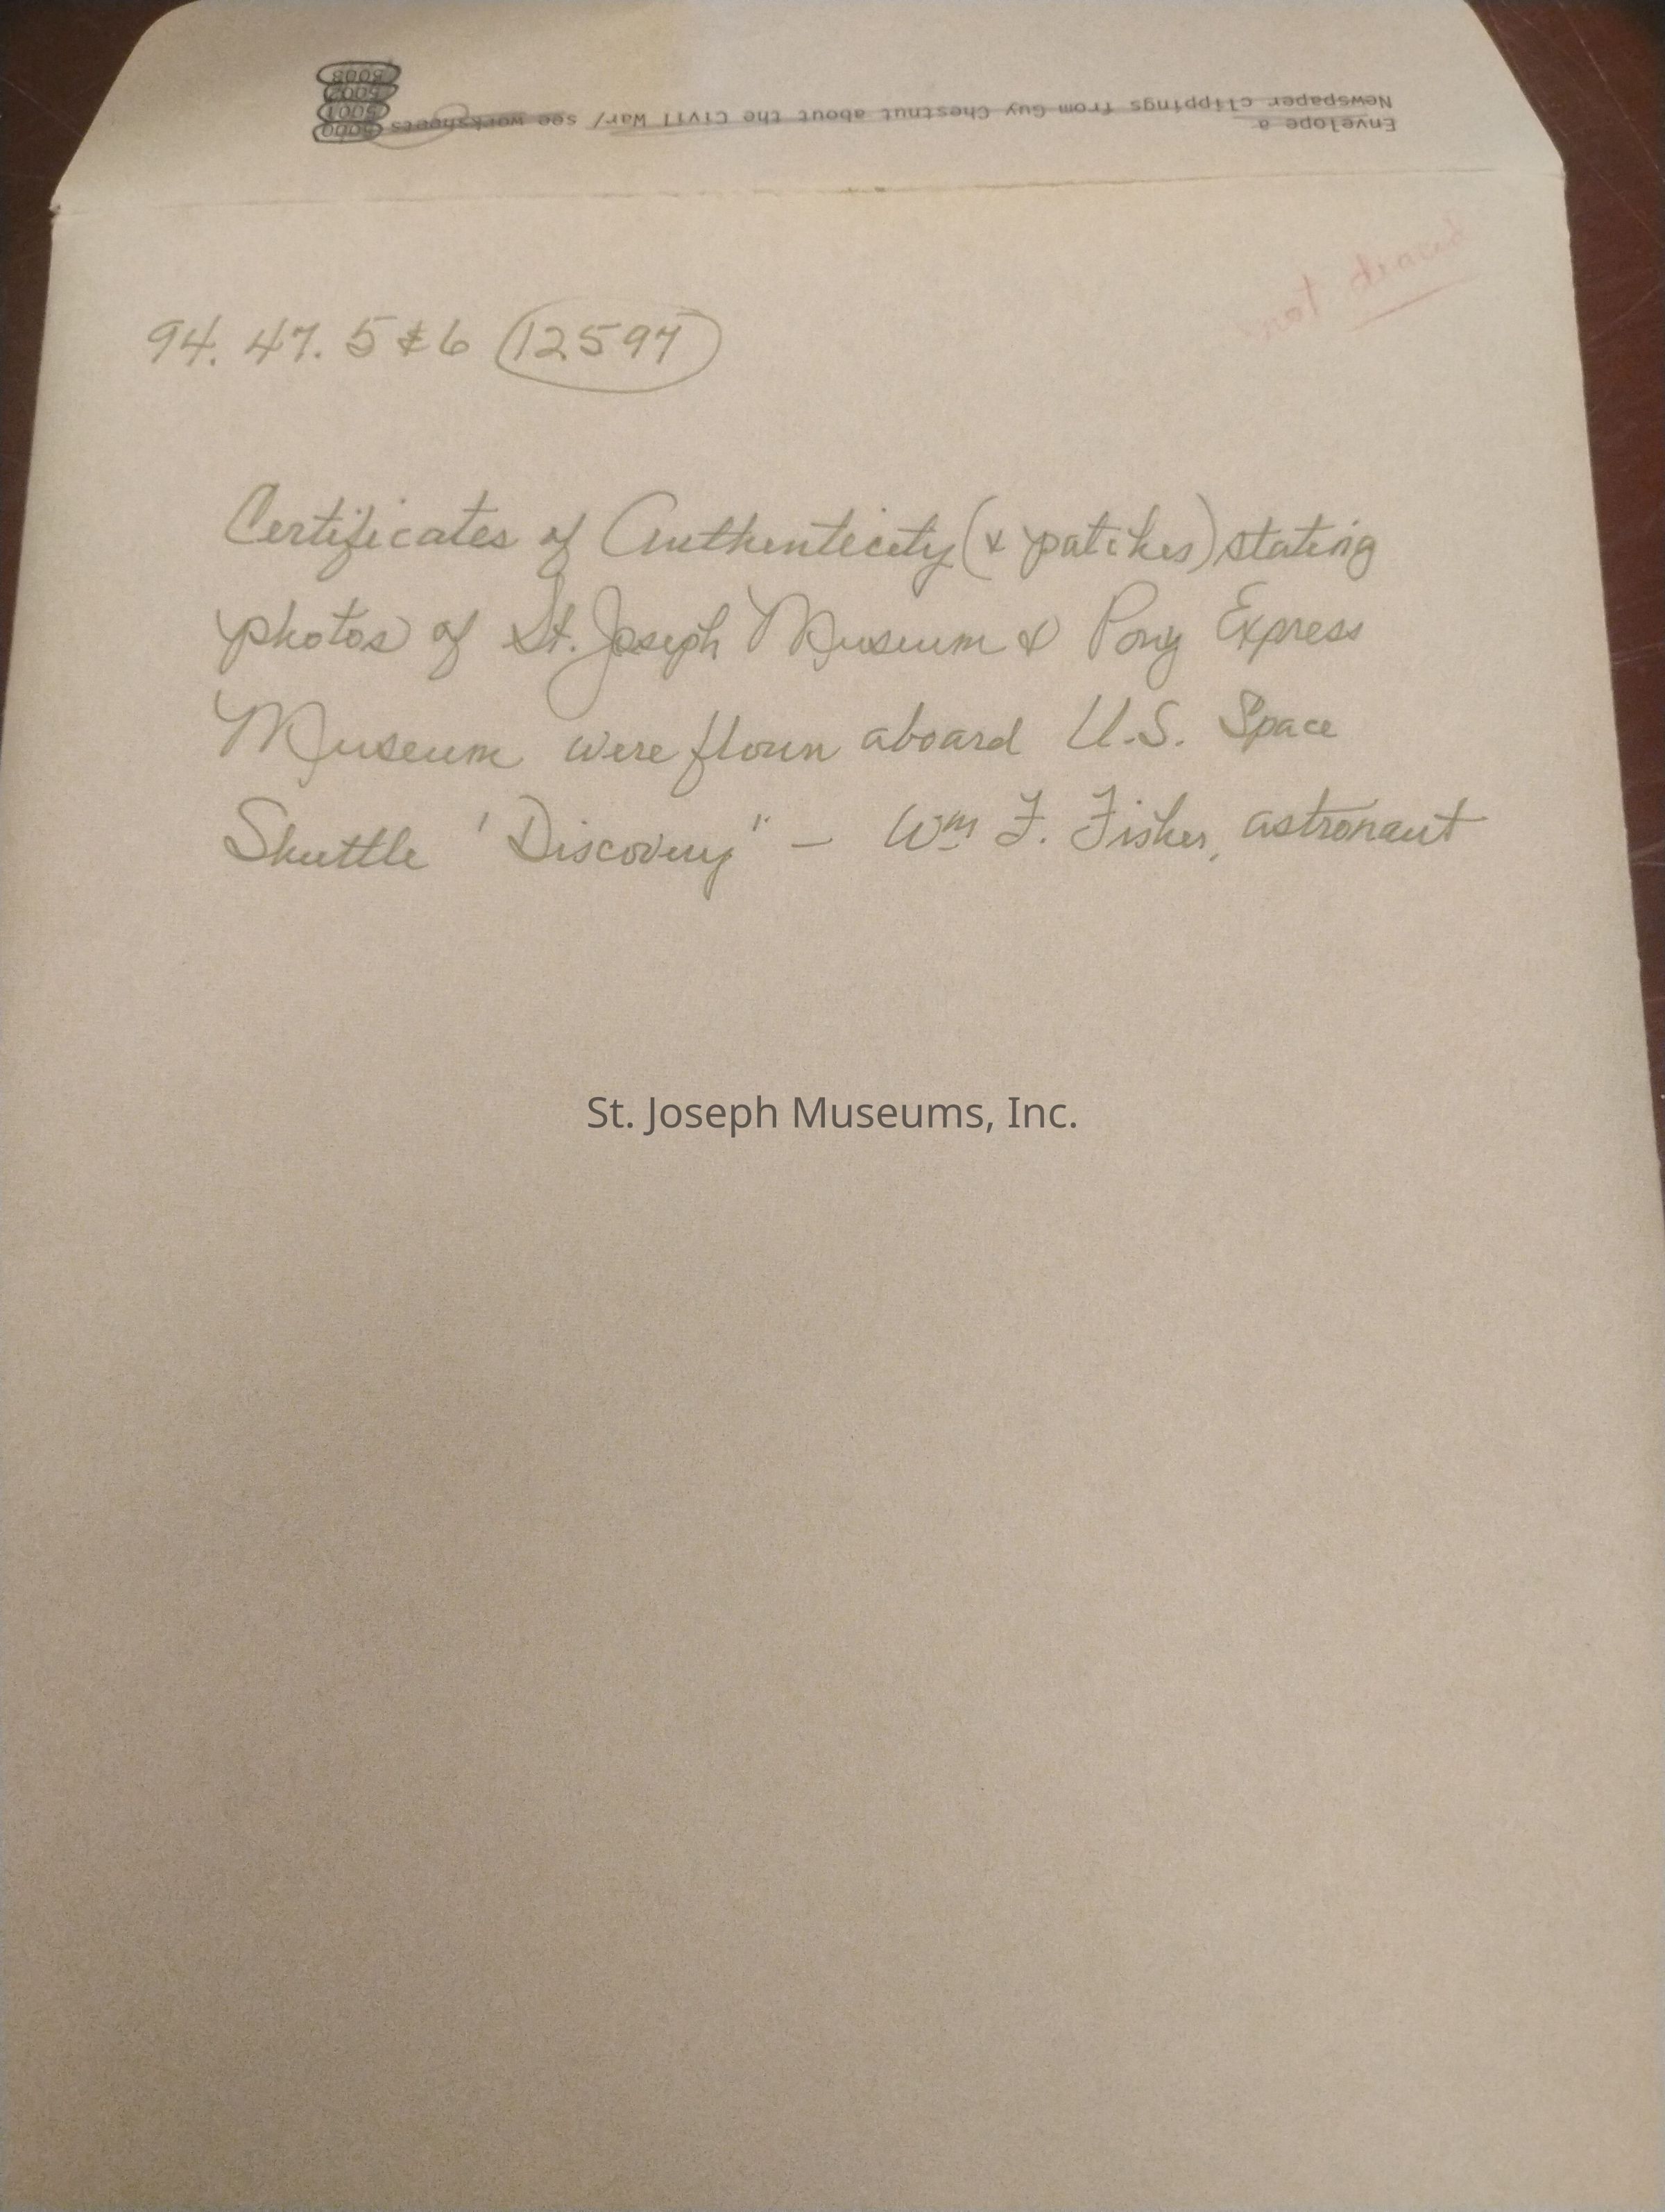 Envelope a
Newspaper clippings from Guy Chestnut about the Civil War/ see worksheets
5000
5001
5002
5003
not
94.47.5 & 6 12597
Certificates of Authenticity (& patches) stating
photos of St. Joseph Museum & Pony Express
Museum were flown aboard U.S. Space
Shuttle "Discovery" — Wm F. Fisher, astronaut
St. Joseph Museums, Inc.